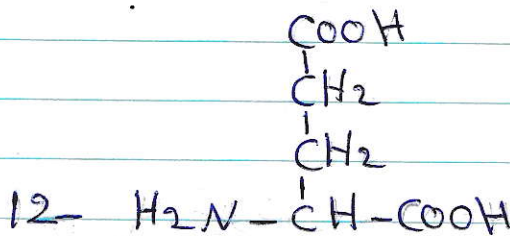 COOH
CH2
CH2
12- H2N-CH-COOH